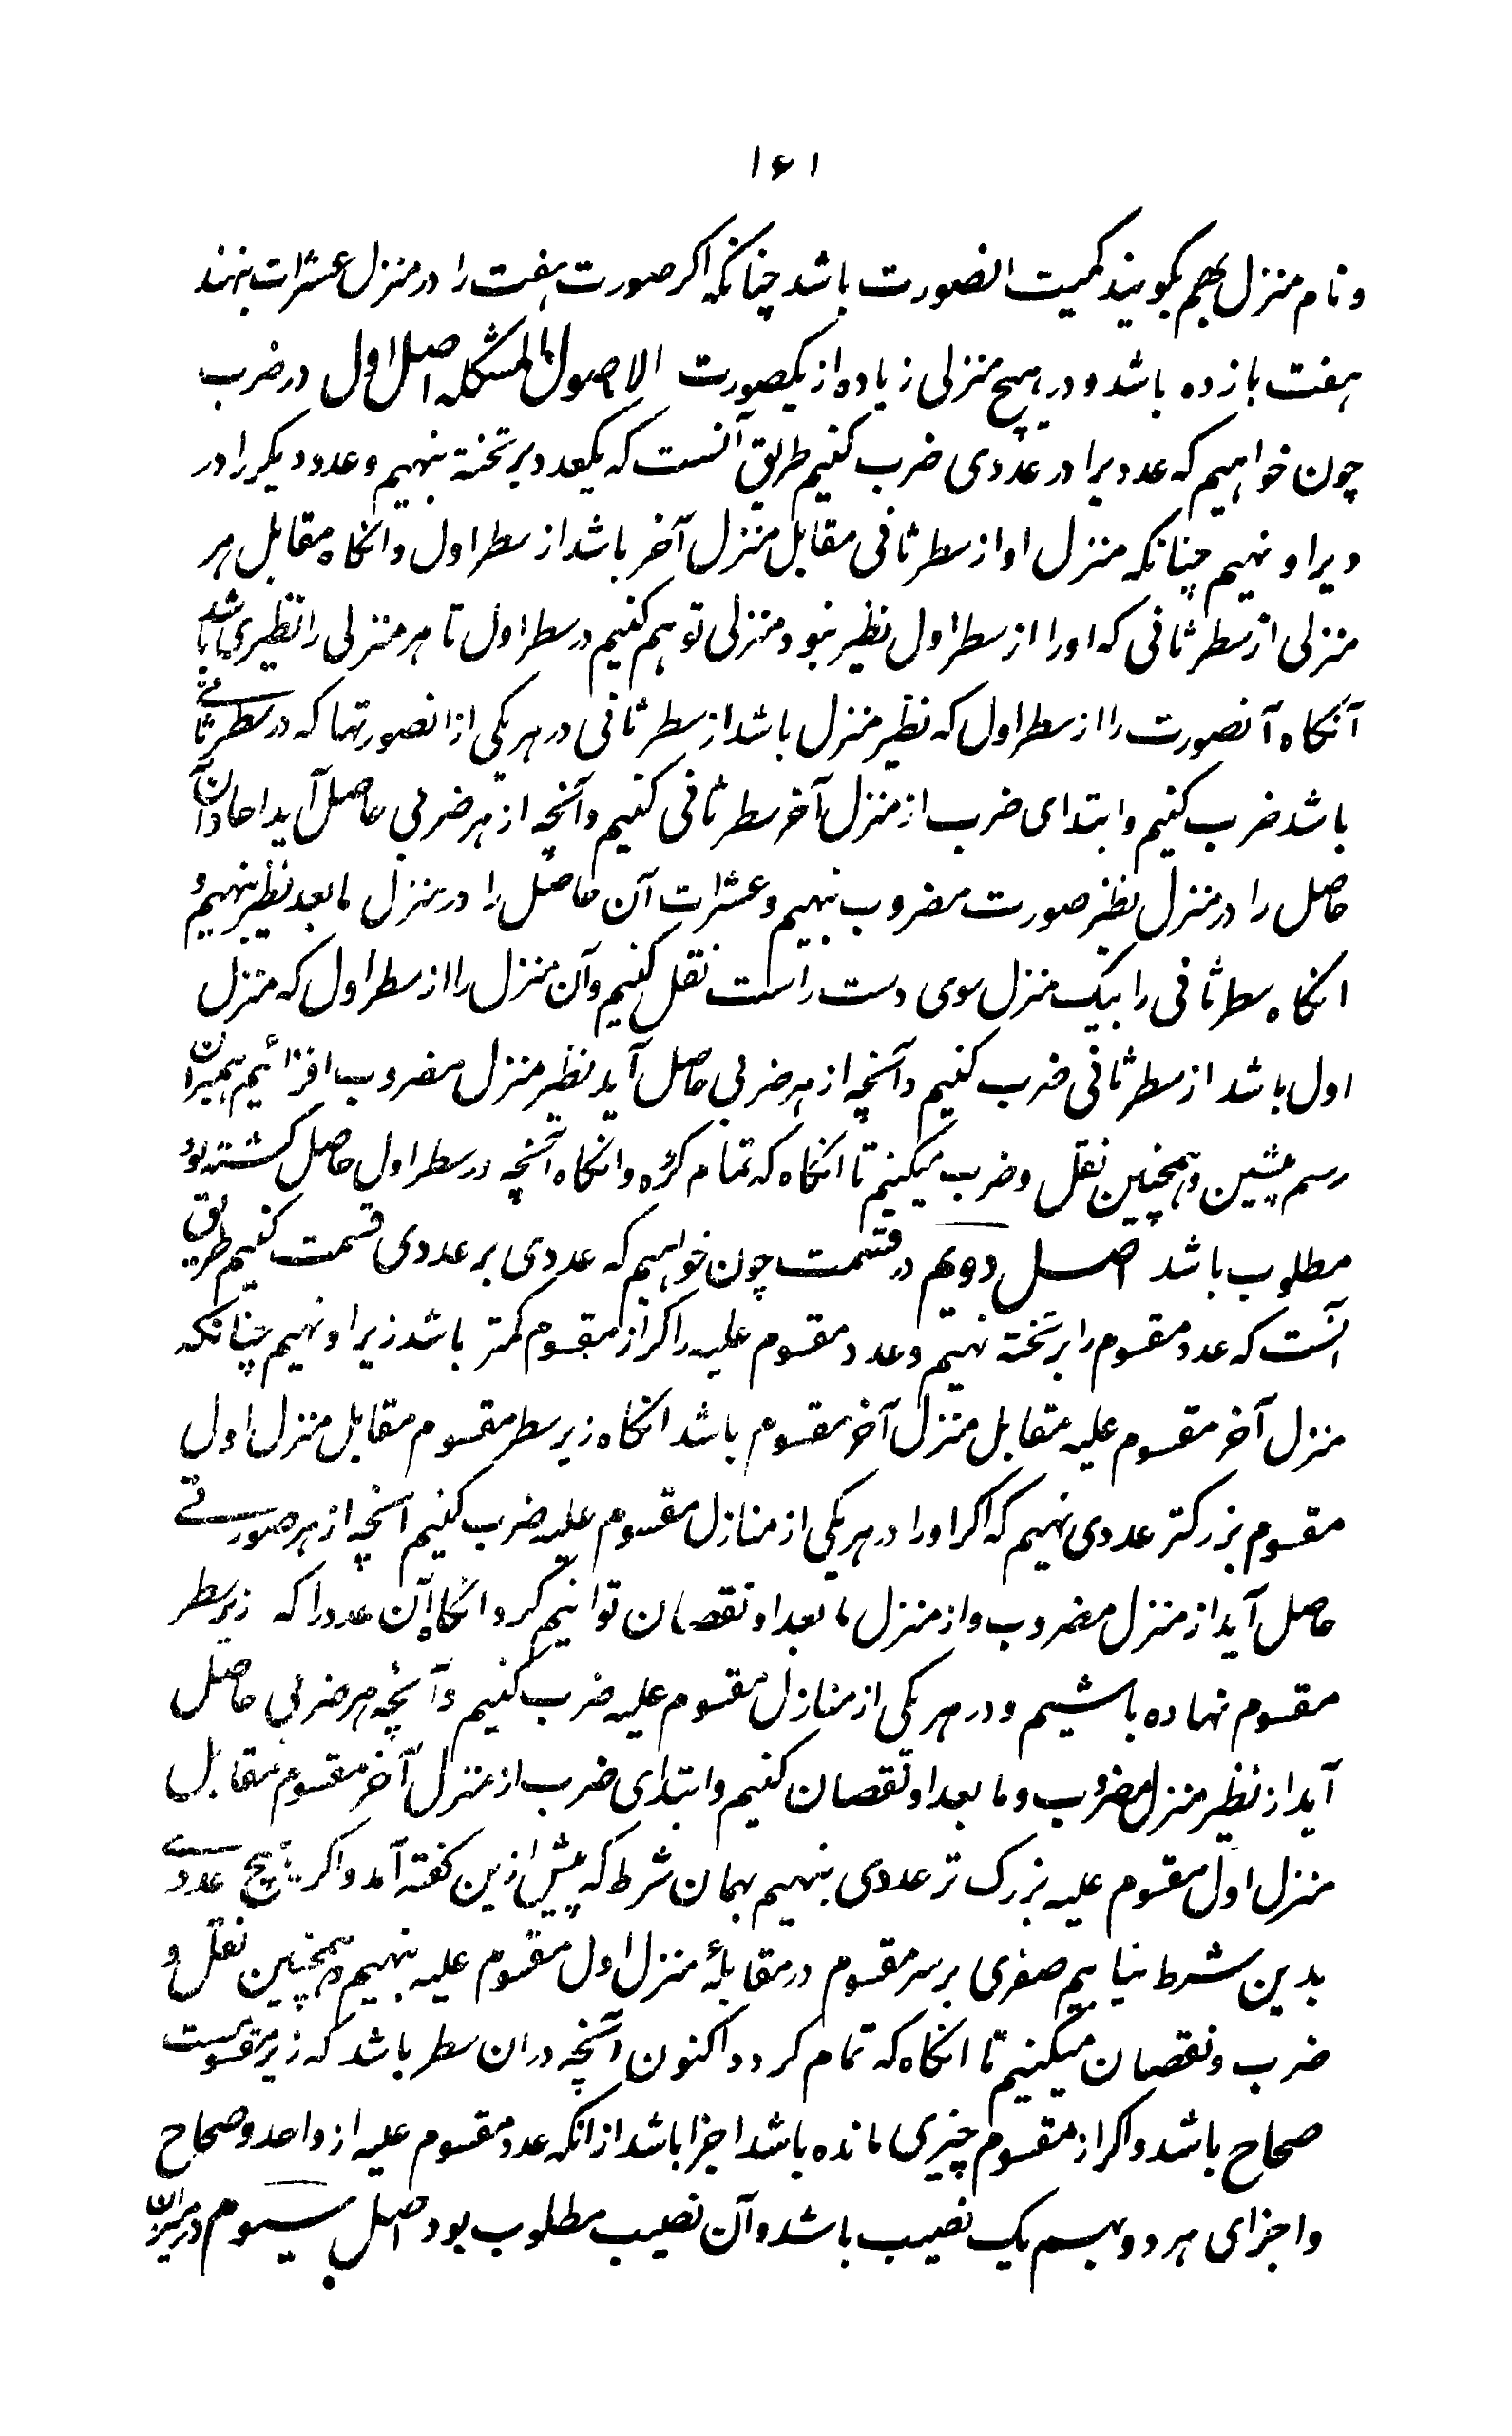 ۱۶۱
و نام منزل بهم بکویند کمیت انصورت باشد چنانکه اکر صورت هفت را در منزل عشرات بنهند
هفت بار ده باشد و در هیچ منزلی زیاده از یکصورت الاصول المشکله اصل اول در ضرب
چون خواهیم که عددیرا در عددی ضرب کنیم طریق آنست که یکعدد بر تخته بنهیم و عدد دیکر را در
زیر او نهیم چنانکه منزل او از سطر ثانی مقابل منزل آخر باشد از سطر اول و انکاه مقابل هر
منزلی از سطر ثانی که او را از سطر اول نظیر نبود منزلی توهم کنیم در سطر اول تا هر منزلی را نظیری باشد
آنکاه آنصورت را از سطر اول که نظیر منزل باشد از سطر ثانی در هر یکی از انصورتها که در سطر ثانی
باشد ضرب کنیم و ابتدای ضرب از منزل آخر سطر ثانی کنیم و آنچه از هر ضربی حاصل آید احاد آن
حاصل را در منزل نظیر صورت مضروب بنهیم و عشرات آن حاصل را در منزل ما بعد نظیر بنهیم و
انکاه سطر ثانی را بیک منزل سوی دست راست نقل کنیم و آن منزل را از سطر اول که منزل
اول باشد از سطر ثانی ضرب کنیم و آنچه از هر ضربی حاصل آید نظیر منزل مضروب افزائیم بهمبران
رسم پیشین و همچنین نقل و ضرب میکنیم تا انکاه که تمام کرده و انکاه آنچه در سطر اول حاصل کشته بود
مطلوب باشد اصل دوم در قسمت چون خواهیم که عددی بر عددی قسمت کنیم طریق
آنست که عدد مقسوم را بر تخته نهیم و عدد مقسوم علیه را کر از مقسوم کمتر باشد زیر او نهیم چنانکه
منزل آخر مقسوم علیه مقابل منزل آخر مقسوم باشد انکاه زیر سطر مقسوم مقابل منزل اول
مقسوم بزرکتر عددی نهیم که اکر او را در هر یکی از منازل مقسوم علیه ضرب کنیم آنچه از هر صورتی
حاصل آید از منزل مضروب و از منزل ما بعد او نقصان توانیم کرد انکاه آن عدد را که زیر سطر
مقسوم نهاده باشیم و در هر یکی از منازل مقسوم علیه ضرب کنیم و آنچه هر ضربی حاصل
آید از نظیر منزل مضروب و ما بعد او نقصان کنیم و ابتدای ضرب از منزل آخر مقسوم مقابل
منزل اول مقسوم علیه بزرک تر عددی بنهیم بهمان شرط که پیش ازین کفته آمد و اکر هیچ عددی
بدین شرط نیابیم صفری بر سر مقسوم در مقابلهٔ منزل اول مقسوم علیه بنهیم و همچنین نقل و
ضرب و نقصان میکنیم تا انکاه که تمام کردد اکنون آنچه دران سطر باشد که زیر مقسومست
صحاح باشد و اکر از مقسوم چیزی مانده باشد اجزا باشد ازانکه عدد مقسوم علیه از واحد و صحاح
و اجزای هر دو بهم یک نصیب باشد و آن نصیب مطلوب بود اصل سیوم در میزان